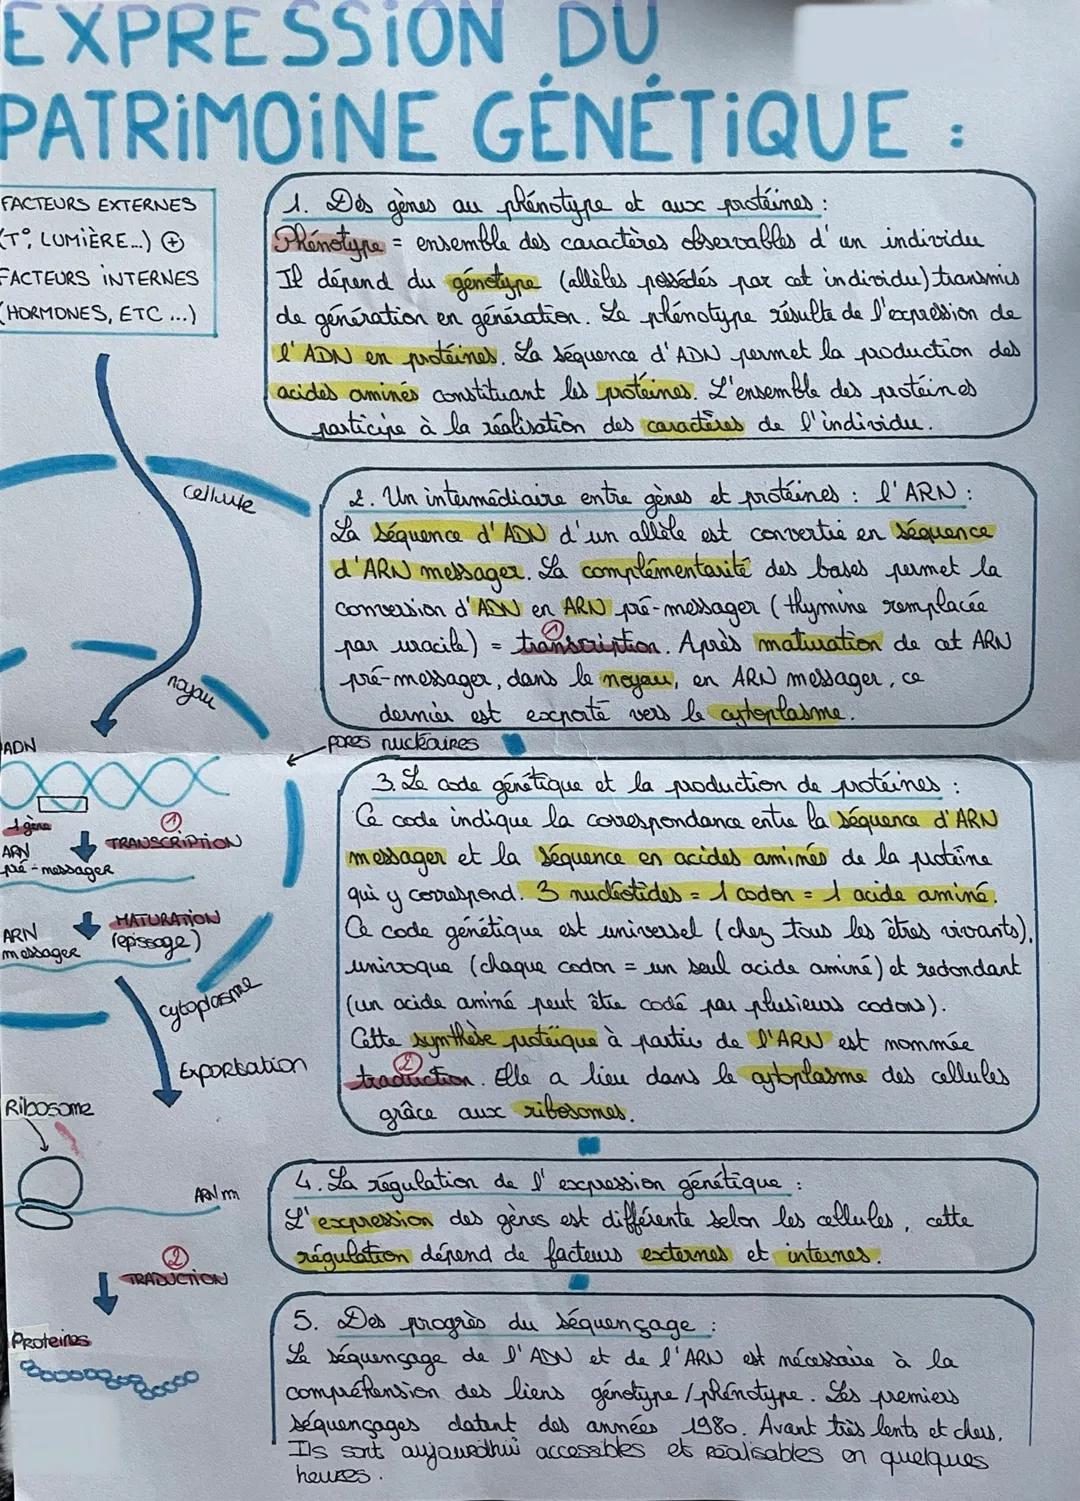 EXPRESSION DU
PATRIMOINE GÉNÉTIQUE :
FACTEURS EXTERNES
(T°, LUMIÈRE...) ⊕
FACTEURS INTERNES
(HORMONES, ETC ...)
1. Des gènes au phénotype et aux protéines :
Phénotype = ensemble des caractères observables d'un individu
Il dépend du génotype (allèles possédés par cet individu) transmis
de génération en génération. Le phénotype résulte de l'expression de
l'ADN en protéines. La séquence d'ADN permet la production des
acides aminés constituant les protéines. L'ensemble des protéines
participe à la réalisation des caractères de l'individu.
cellule
2. Un intermédiaire entre gènes et protéines : l'ARN :
La séquence d'ADN d'un allèle est convertie en séquence
d'ARN messager. La complémentarité des bases permet la
conversion d'ADN en ARN pré-messager (thymine remplacée
par uracile) = transcription. ① Après maturation de cet ARN
pré-messager, dans le noyau, en ARN messager, ce
dernier est exporté vers le cytoplasme.
noyau
pores nucléaires
ADN
1 gène
① TRANSCRIPTION
ARN
pré-messager
MATURATION
(épissage)
ARN
messager
cytoplasme
Exportation
3. Le code génétique et la production de protéines :
Ce code indique la correspondance entre la séquence d'ARN
messager et la séquence en acides aminés de la protéine
qui y correspond. 3 nucléotides = 1 codon = 1 acide aminé.
Ce code génétique est universel (chez tous les êtres vivants),
univoque (chaque codon = un seul acide aminé) et redondant
(un acide aminé peut être codé par plusieurs codons).
Cette synthèse protéique à partir de l'ARN est nommée
traduction. ② Elle a lieu dans le cytoplasme des cellules
grâce aux ribosomes.
Ribosome
ARN m
② TRADUCTION
Proteines
4. La régulation de l'expression génétique :
L'expression des gènes est différente selon les cellules, cette
régulation dépend de facteurs externes et internes.
5. Des progrès du séquençage :
Le séquençage de l'ADN et de l'ARN est nécessaire à la
compréhension des liens génotype/phénotype. Les premiers
séquençages datent des années 1980. Avant très lents et chers,
Ils sont aujourd'hui accessibles et réalisables en quelques
heures.